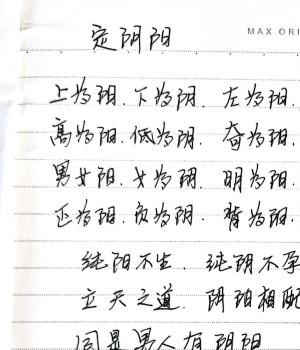 定阴阳
MAX ORI
上为阳.下为阴.左为阳.
高为阳.低为阴.奇为阳.
男女阳.女为阴.明为阳.
正为阳.负为阴.背为阳.
纯阳不生.纯阴不孕
立天之道.阴阳相配
同是男人有阴阳